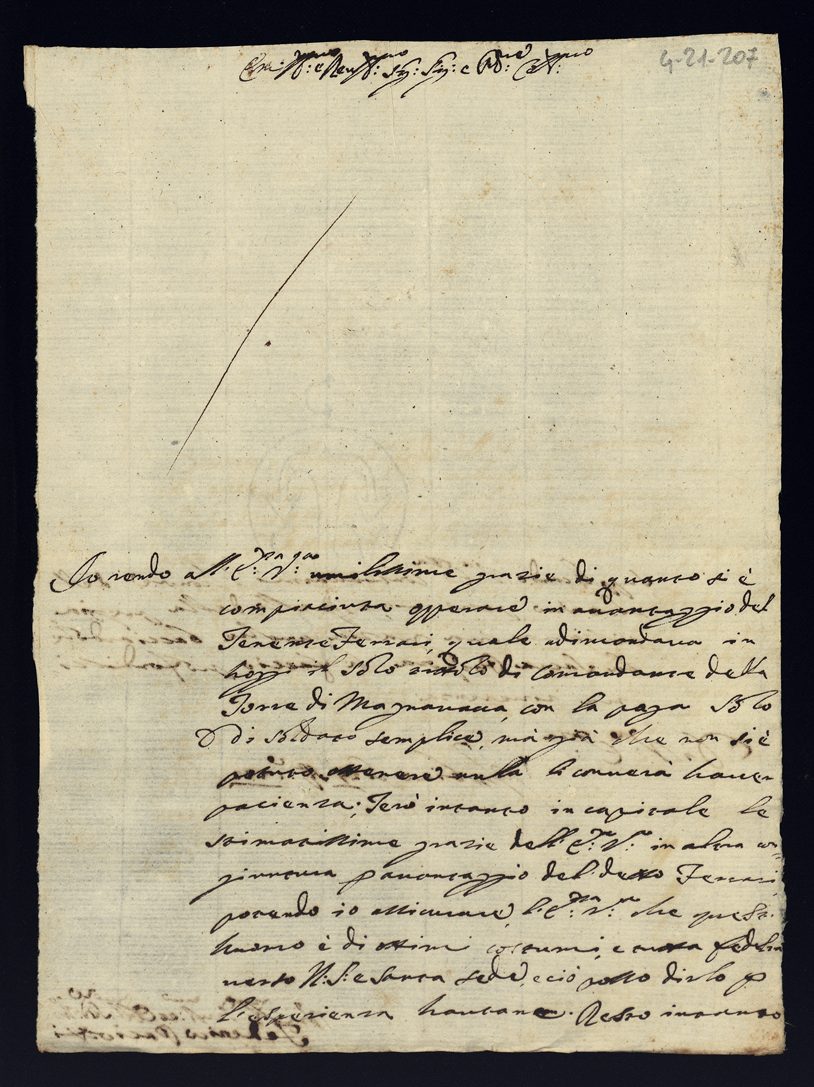 4-21-207
Em.mo e Rev.mo Sig.r Sig.r e P.rone Col.mo
Io rendo all'E.za V.ra umilissime grazie di quanto si è
compiaciuta operare in avantaggio del
Tenente Ferrari, quale adimandava in
hoggi il solo titolo di comandante della
Torre di Magnavacca, con la paga solo
di soldato semplice, mà già che non si è
potuto ottenere nulla li converà haver
pacienza; Terò intanto in capitale le
stimatissime grazie dell'E.za V.ra in altra con=
giuntura p avantaggio del detto Ferrari
potendo io assicurare l'E.za V.ra che questo
huomo è di ottimi costumi, e tutta fedeltà
verso N.S. e Santa Sede, e ciò posso dirlo p
l'esperienza hautane. Resto intanto